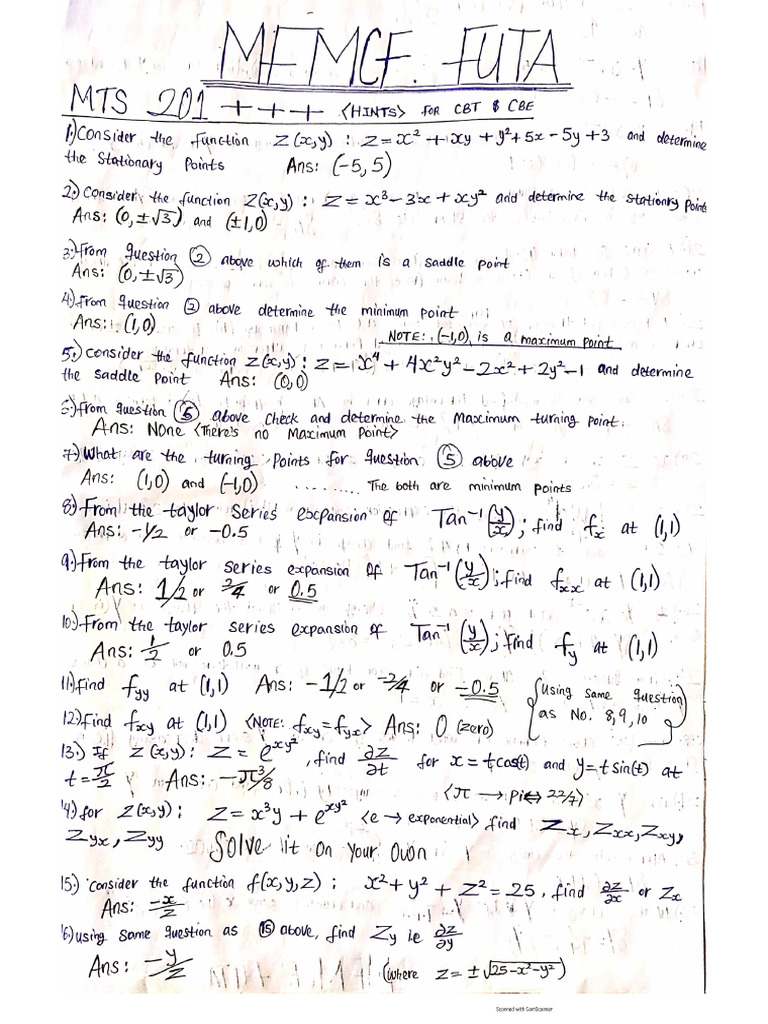 MFMCF. FUTA
MTS 201 +++ <HINTS> FOR CBT & CBE
1.) Consider the function Z(x,y) : Z = x² + xy + y² + 5x - 5y + 3 and determine
the Stationary Points Ans: (-5, 5)
2.) Consider the function Z(x,y) : Z = x³ - 3x + xy² and determine the stationary point
Ans: (0, ±√3) and (±1, 0)
3.) From question ② above which of them is a saddle point
Ans: (0, ±√3)
4.) From question ② above determine the minimum point
Ans: (1, 0)
NOTE: (-1,0) is a maximum point
5.) Consider the function Z(x,y) : Z = x⁴ + 4x²y² - 2x² + 2y² - 1 and determine
the saddle point Ans: (0,0)
6.) From question ⑤ above check and determine the maximum turning point.
Ans: None <There's no maximum point>
7.) What are the turning points for question ⑤ above
Ans: (1,0) and (-1,0) .......... The both are minimum points
8.) From the taylor series expansion of Tan⁻¹(y/x); find fx at (1,1)
Ans: -1/2 or -0.5
9.) From the taylor series expansion of Tan⁻¹(y/x); find fxx at (1,1)
Ans: 1/2 or 2/4 or 0.5
10.) From the taylor series expansion of Tan⁻¹(y/x); find fy at (1,1)
Ans: 1/2 or 0.5
11.) find fyy at (1,1) Ans: -1/2 or -2/4 or -0.5 {using same question
as No. 8,9,10}
12.) Find fxy at (1,1) <NOTE: fxy = fyx> Ans: 0 (zero)
13.) If Z(x,y) : Z = e^xy², find ∂z/∂t for x = t cos(t) and y = t sin(t) at
t = π/2 Ans: -π³/8
<π → pi ↔ 22/7>
14.) for Z(x,y) : Z = x³y + e^xy² <e → exponential> find Zx, Zxx, Zxy,
Zyx, Zyy Solve it on your own
15.) Consider the function f(x,y,z) : x² + y² + z² = 25, find ∂z/∂x or Zx
Ans: -x/z
16.) using same question as ⑮ above, find Zy ie ∂z/∂y
Ans: -y/z (where z = ±√25-x²-y²)
Scanned with CamScanner